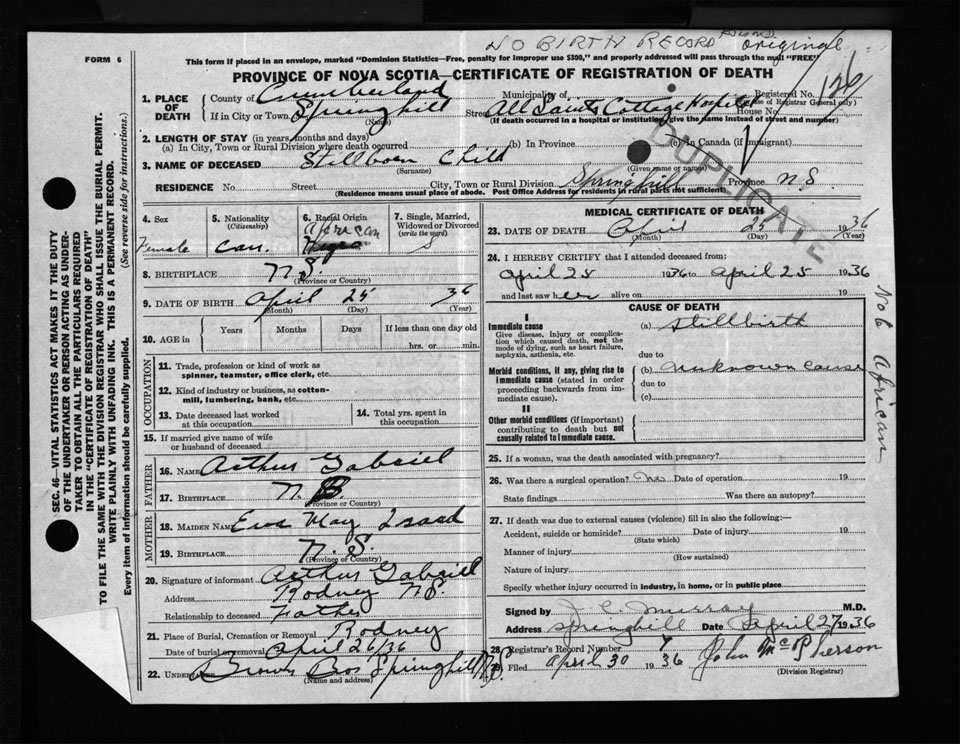 NO BIRTH RECORD
original
FORM 6
This form if placed in an envelope, marked "Dominion Statistics—Free, penalty for improper use $300," and properly addressed will pass through the mail "FREE"
PROVINCE OF NOVA SCOTIA—CERTIFICATE OF REGISTRATION OF DEATH
126
1. PLACE OF DEATH
County of Cumberland Municipality of Registered No.
(Use of Registrar General only)
If in City or Town Springhill Street All Saints Cottage Hospital House No.
(Name) (If death occurred in a hospital or institution, give the name instead of street and number)
2. LENGTH OF STAY (in years, months and days)
(a) In City, Town or Rural Division where death occurred (b) In Province (c) In Canada (if immigrant)
DUPLICATE
3. NAME OF DECEASED Stillborn Child
(Surname) (Given name or names)
RESIDENCE No. Street City, Town or Rural Division Springhill Province N.S.
(Residence means usual place of abode. Post Office Address for residents in rural parts not sufficient)
4. Sex Female
5. Nationality (Citizenship) Can.
6. Racial Origin African Negro
7. Single, Married, Widowed or Divorced (write the word) S
8. BIRTHPLACE N.S.
(Province or Country)
9. DATE OF BIRTH April 25 36
(Month) (Day) (Year)
10. AGE in Years Months Days If less than one day old
hrs. or min.
OCCUPATION
11. Trade, profession or kind of work as spinner, teamster, office clerk, etc.
12. Kind of industry or business, as cotton-mill, lumbering, bank, etc.
13. Date deceased last worked at this occupation
14. Total yrs. spent in this occupation
15. If married give name of wife or husband of deceased
FATHER
16. NAME Arthur Gabriel
17. BIRTHPLACE N.B.
(Province or Country)
MOTHER
18. MAIDEN NAME Eva May
19. BIRTHPLACE N.S.
(Province or Country)
20. Signature of informant Arthur Gabriel
Address Rodney N.S.
Relationship to deceased Father
21. Place of Burial, Cremation or Removal Rodney
Date of burial or removal April 26/36
22. UNDERTAKER Brown Bros Springhill N.S.
(Name and address)
MEDICAL CERTIFICATE OF DEATH
23. DATE OF DEATH April 25 1936
(Month) (Day) (Year)
24. I HEREBY CERTIFY that I attended deceased from:
April 25 1936 to April 25 1936
and last saw her alive on 19
CAUSE OF DEATH
I
Immediate cause
Give disease, injury or complication which caused death, not the mode of dying, such as heart failure, asphyxia, asthenia, etc.
(a) Stillbirth
due to
Morbid conditions, if any, giving rise to immediate cause (stated in order proceeding backwards from immediate cause).
(b) Unknown cause
due to
(c)
II
Other morbid conditions (if important) contributing to death but not causally related to immediate cause.
25. If a woman, was the death associated with pregnancy?
26. Was there a surgical operation? No Date of operation 19
State findings Was there an autopsy?
27. If death was due to external causes (violence) fill in also the following:—
Accident, suicide or homicide? Date of injury 19
(State which)
Manner of injury
(How sustained)
Nature of injury
Specify whether injury occurred in industry, in home, or in public place
Signed by J. C. Murray M.D.
Address Springhill Date April 27 1936
28. Registrar's Record Number 7
29. Filed April 30 1936 John McPherson
(Division Registrar)
No 6 African
SEC. 46—VITAL STATISTICS ACT MAKES IT THE DUTY
OF THE UNDERTAKER OR PERSON ACTING AS UNDER-
TAKER TO OBTAIN ALL THE PARTICULARS REQUIRED
IN THE "CERTIFICATE OF REGISTRATION OF DEATH"
TO FILE THE SAME WITH THE DIVISION REGISTRAR WHO SHALL ISSUE THE BURIAL PERMIT.
WRITE PLAINLY WITH UNFADING INK. THIS IS A PERMANENT RECORD.
Every item of information should be carefully supplied. (See reverse side for instructions.)